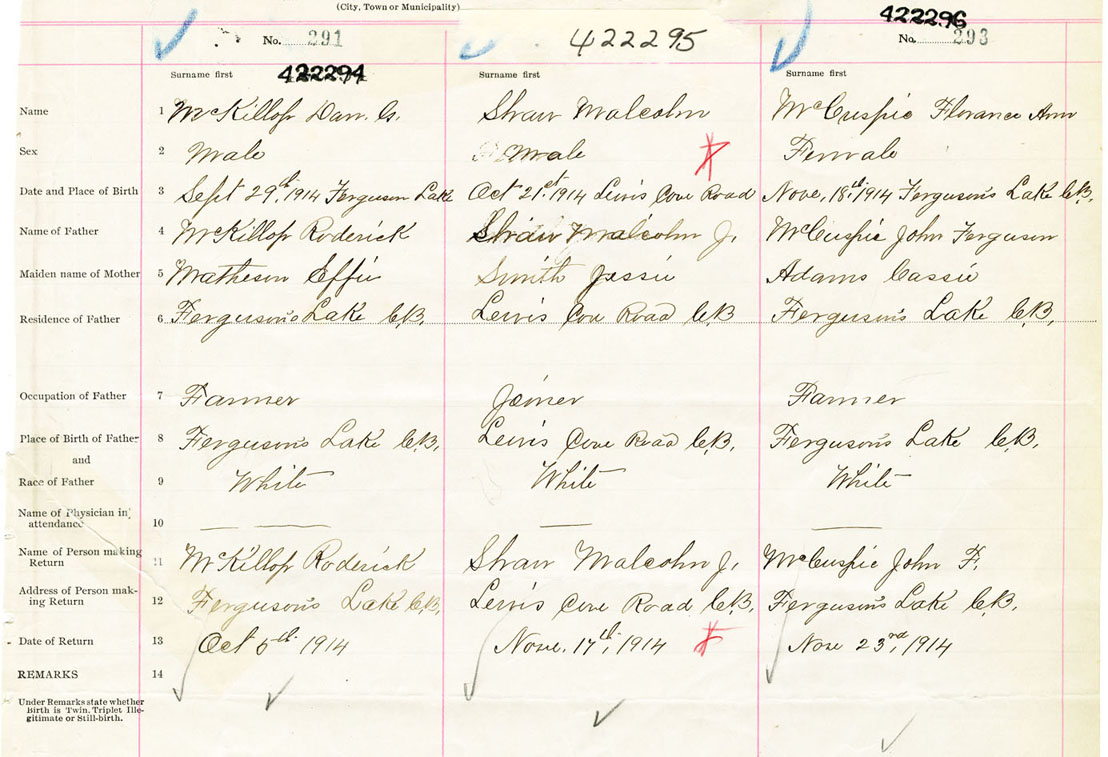 (City, Town or Municipality)
No. 291 422295 422296
No. 293
Surname first 422294 Surname first Surname first
Name 1 McKillop Dan. G. Shaw Malcolm McCuspic Florance Ann
Sex 2 Male male Female
Date and Place of Birth 3 Sept 29th, 1914 Ferguson Lake Oct 21st 1914 Lewis Cove Road Nove, 18th, 1914 Ferguson's Lake C.B.
Name of Father 4 McKillop Roderick Shaw Malcolm J. McCuspic John Ferguson
Maiden name of Mother 5 Matheson Effie Smith Jessie Adams Cassie
Residence of Father 6 Ferguson's Lake C.B. Lewis Cove Road C.B Ferguson's Lake C.B.
Occupation of Father 7 Farmer Joiner Farmer
Place of Birth of Father 8 Ferguson's Lake C.B. Lewis Cove Road C.B. Ferguson's Lake C.B.
and
Race of Father 9 White White White
Name of Physician in
attendance 10
Name of Person making
Return 11 McKillop Roderick Shaw Malcolm J. McCuspic John F.
Address of Person mak-
ing Return 12 Ferguson's Lake C.B. Lewis Cove Road C.B. Ferguson's Lake C.B.
Date of Return 13 Oct 5th 1914 Nove. 17th, 1914 Nove 23rd, 1914
REMARKS 14
Under Remarks state whether
Birth is Twin. Triplet Ille-
gitimate or Still-birth.